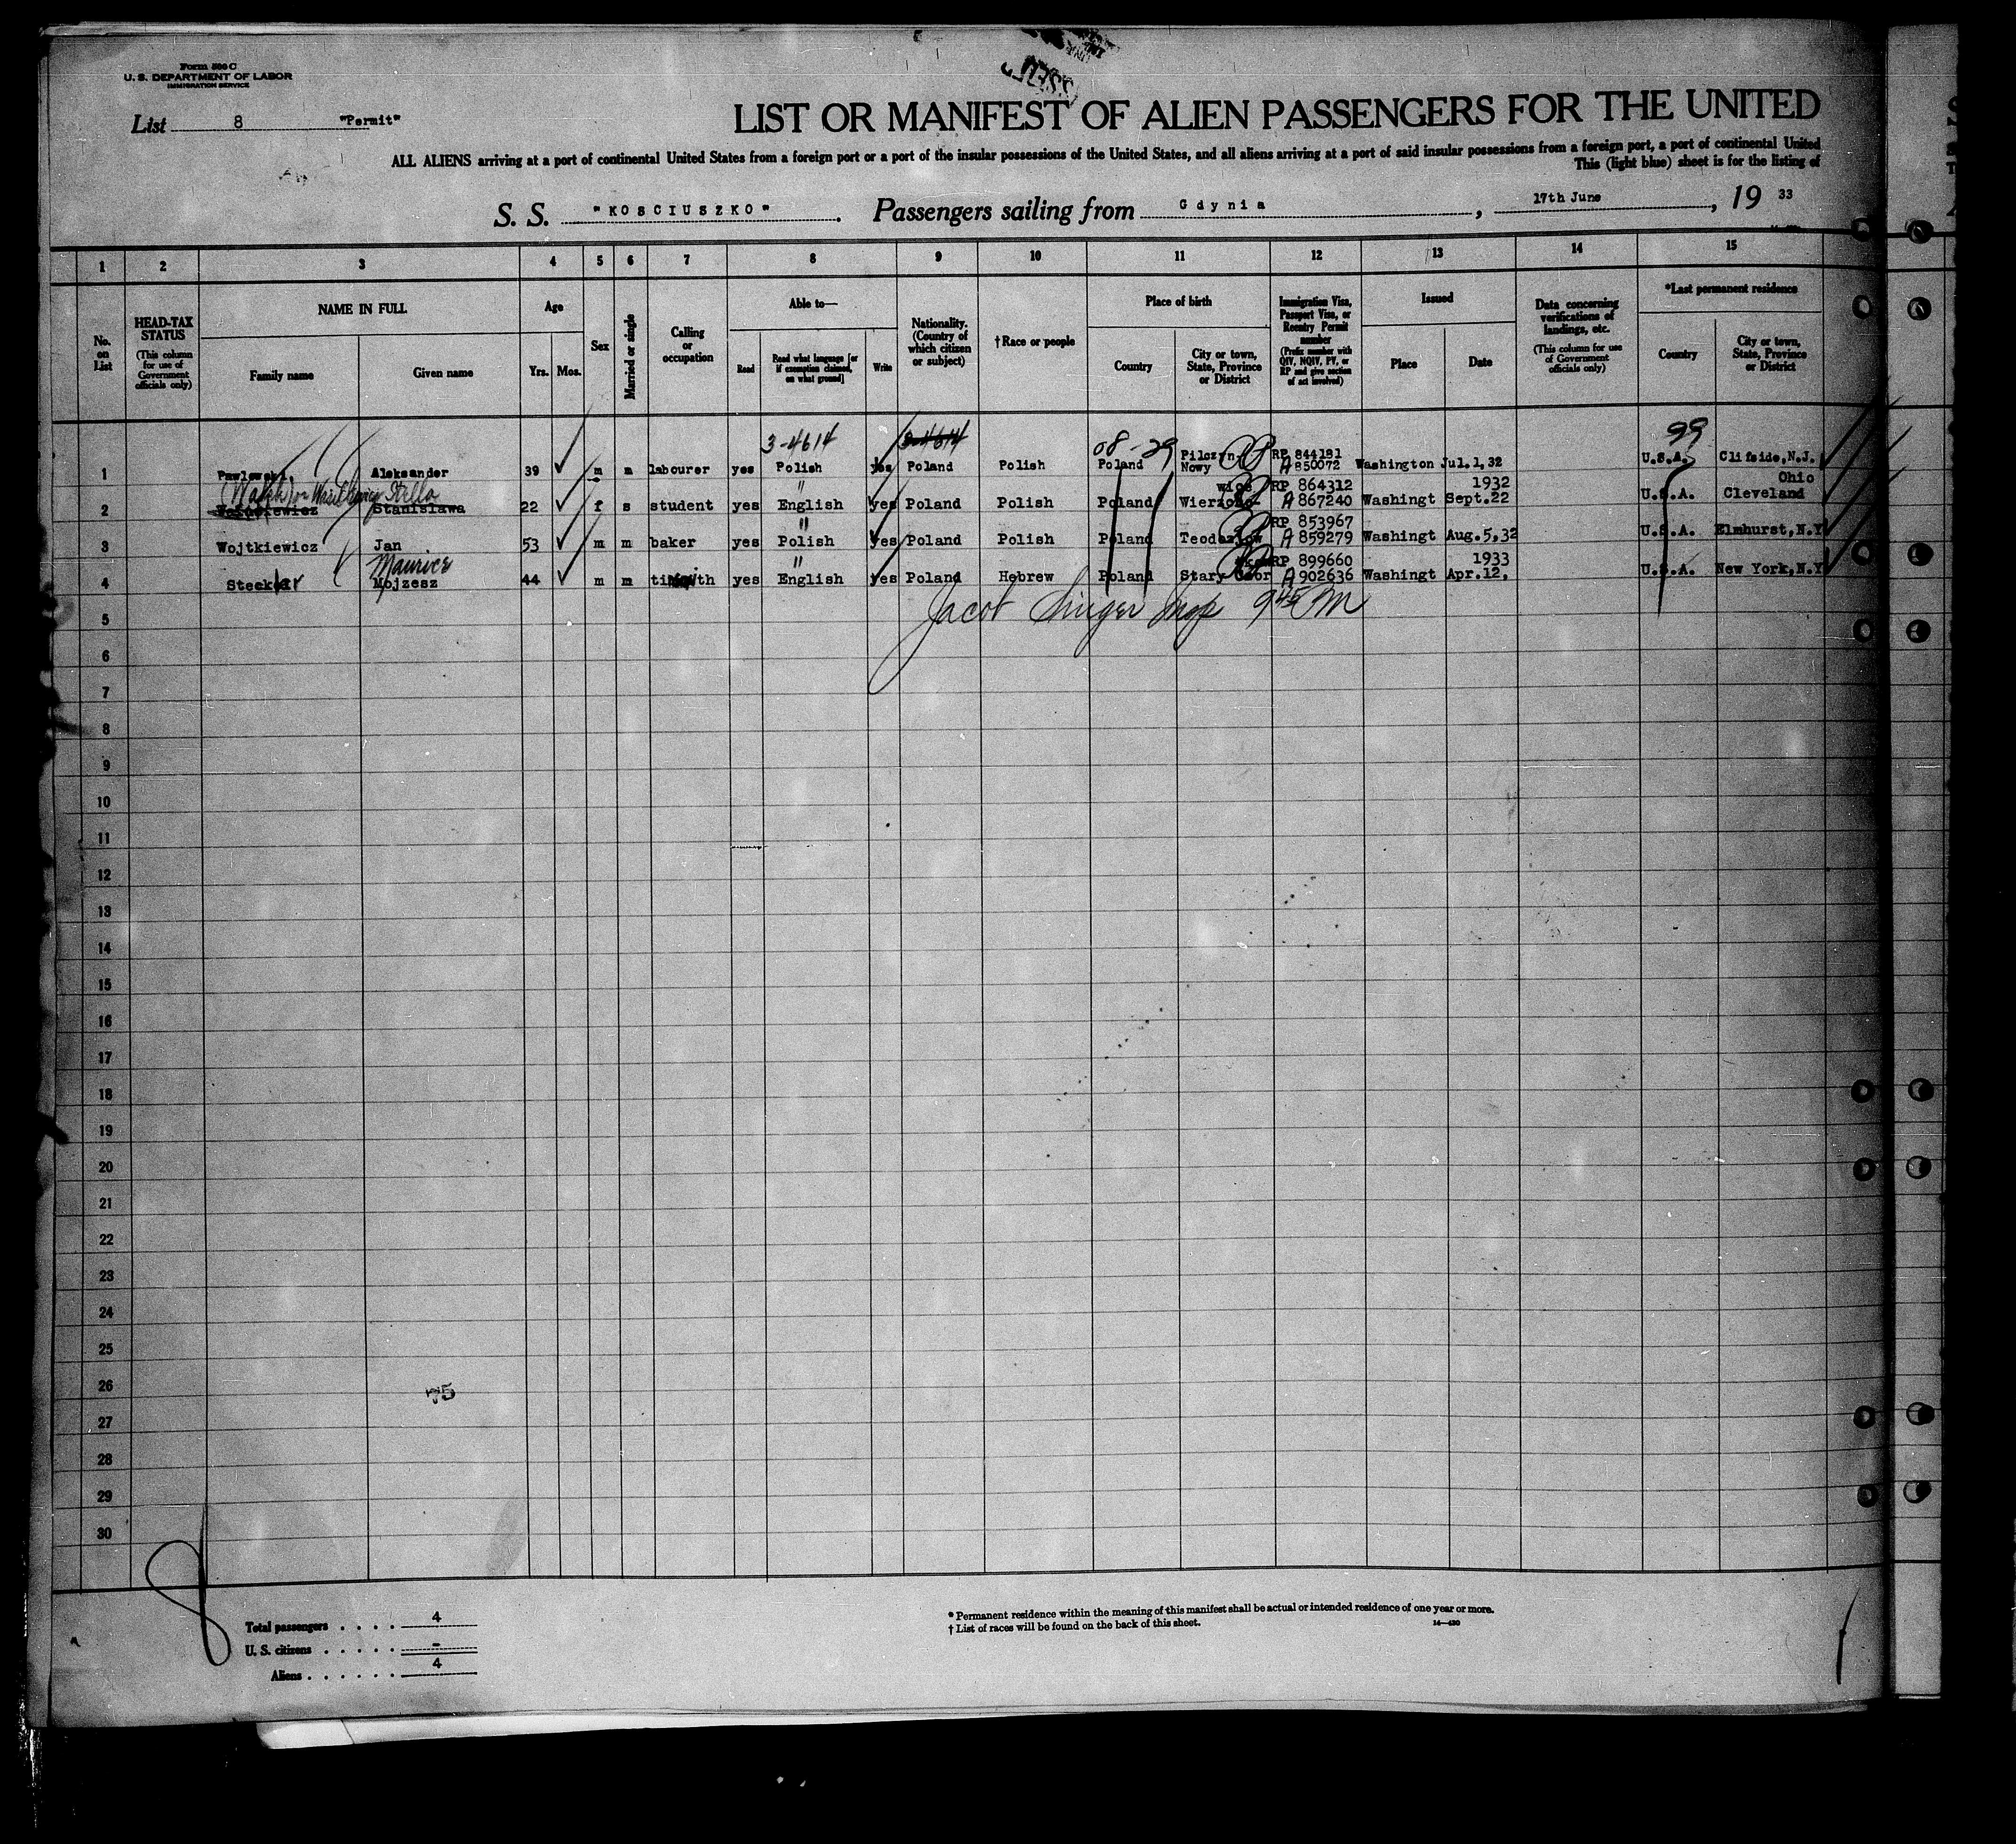 Form 500 C
U. S. DEPARTMENT OF LABOR
IMMIGRATION SERVICE
List 8 "Permit"
LIST OR MANIFEST OF ALIEN PASSENGERS FOR THE UNITED
ALL ALIENS arriving at a port of continental United States from a foreign port or a port of the insular possessions of the United States, and all aliens arriving at a port of said insular possessions from a foreign port, a port of continental United
This (light blue) sheet is for the listing of
S. S. "KOSCIUSZKO" . Passengers sailing from Gdynia , 17th June , 19 33
1 2 3 4 5 6 7 8 9 10 11 12 13 14 15
No. on List
HEAD-TAX STATUS (This column for use of Government officials only)
NAME IN FULL
Family name
Given name
Age
Yrs. Mos.
Sex
Married or single
Calling or occupation
Able to—
Read
Read what language [or if exemption claimed, on what ground]
Write
Nationality. (Country of which citizen or subject)
†Race or people
Place of birth
Country
City or town, State, Province or District
Immigration Visa, Passport Visa, or Reentry Permit number (Prefix number with QIV, NQIV, PV, or RP and give section of act involved)
Issued
Place
Date
Data concerning verifications of landings, etc. (This column for use of Government officials only)
*Last permanent residence
Country
City or town, State, Province or District
3-4614 3-4614 08-29 99
1 Pawlowski, Aleksander 39 m m labourer yes Polish yes Poland Polish Poland Pilczyn Nowy RP 844181 A 850072 Washington Jul.1,32 U.S.A. Clifside,N.J.
Stella
2 Stanislawa 22 f s student yes English yes Poland Polish Poland RP 864312 A 867240 Washingt Sept.22 1932 U.S.A. Cleveland Ohio
3 Wojtkiewicz Jan 53 m m baker yes Polish yes Poland Polish Poland RP 853967 A 859279 Washingt Aug.5,32 U.S.A. Elmhurst,N.Y
Maurice
4 Mojzesz 44 m m yes English yes Poland Hebrew Poland Stary RP 899660 A 902636 Washingt Apr.12, 1933 U.S.A. New York,N.Y
5 Jacob Singer Insp 9 45 PM
6
7
8
9
10
11
12
13
14
15
16
17
18
19
20
21
22
23
24
25
26
75
27
28
29
30
8
Total passengers . . . . 4
U. S. citizens . . . . . -
Aliens . . . . . . 4
* Permanent residence within the meaning of this manifest shall be actual or intended residence of one year or more.
† List of races will be found on the back of this sheet.
14—430